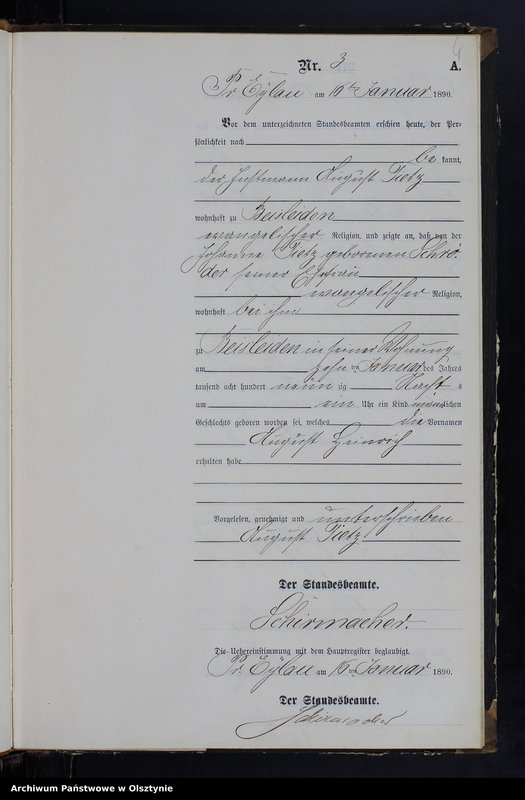 4
Nr. 3 A.
Pr. Eylau am 16ten Januar 1890.
Vor dem unterzeichneten Standesbeamten erschien heute, der Per-
sönlichkeit nach
be kannt,
der Instmann August Tietz
wohnhaft zu Beisleiden
evangelischer Religion, und zeigte an, daß von der
Johanna Tietz geborenen Schrö-
der seiner Ehefrau
evangelischer Religion,
wohnhaft bei ihm
zu Beisleiden in seiner Wohnung
am zehnten Januar des Jahres
tausend acht hundert neun zig Nacht s
um ein Uhr ein Kind männlichen
Geschlechts geboren worden sei, welches die Vornamen
August Heinrich
erhalten habe
Vorgelesen, genehmigt und unterschrieben
August Tietz
Der Standesbeamte.
Schirmacher.
Die Uebereinstimmung mit dem Hauptregister beglaubigt
Pr. Eylau am 16ten Januar 1890.
Der Standesbeamte.
Schirmacher
Archiwum Państwowe w Olsztynie